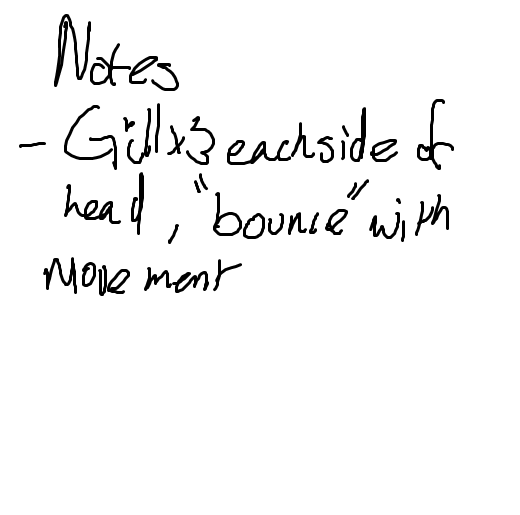 Notes
- Gill x3 each side of
head, "bounce" with
movement